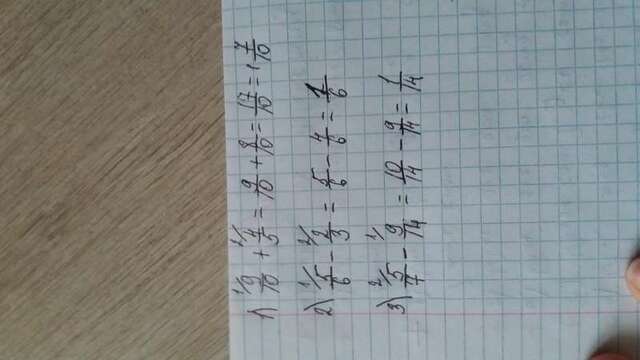 1) ¹⁄9/10 + ²⁄4/5 = 9/10 + 8/10 = 17/10 = 1 7/10
2) ¹⁄5/6 - ²⁄2/3 = 5/6 - 4/6 = 1/6
3) ²⁄5/7 - ¹⁄9/14 = 10/14 - 9/14 = 1/14